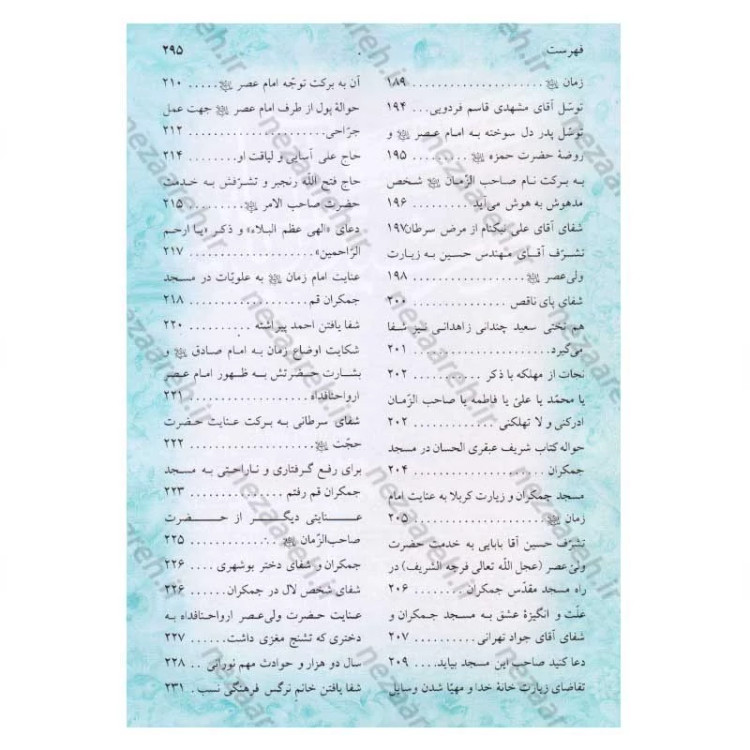 فهرست ۲۹۵
زمان ﷺ ...................... ۱۸۹
توسّل آقای مشهدی قاسم فردویی... ۱۹۴
توسّل پدر دل سوخته به امام عصر و
روضهٔ حضرت حمزه ......... ۱۹۵
به برکت نام صاحب الزّمان شخص
مدهوش به هوش می‌آید ........ ۱۹۶
شفای آقای علی نیکنام از مرض سرطان۱۹۷
تشرّف آقـای مـهندس حسـین بـه زیـارت
ولی‌عصر ................... ۱۹۸
شفای پای ناقص ............. ۲۰۰
هم تختی سعید چندانی زاهدانی نیز شفا
می‌گیرد..................... ۲۰۱
نجات از مهلکه با ذکر ........... ۲۰۲
یا محمّد یا علیُ یا فاطمه یا صاحب الزّمان
ادرکنی و لا تهلکنی ............ ۲۰۲
حواله کتاب شریف عبقری الحسان در مسجد
جمکران ................... ۲۰۴
مسجد جمکران و زیارت کربلا به عنایت امام
زمان ..................... ۲۰۵
تشرّف حسین آقا بابایی به خدمت حضرت
ولیّ عصر (عجل اللّه تعالی فرجه الشریف) در
راه مسجد مقدّس جمکران ........ ۲۰۶
علّت و انگیزهٔ عشق به مسجد جمکران و
شفای آقای جواد تهرانی .......... ۲۰۷
دعا کنید صاحب این مسجد بیاید.... ۲۰۹
تقاضای زیارت خانهٔ خدا و مهیّا شدن وسایل
آن به برکت توجّه امام عصر ..... ۲۱۰
حوالهٔ پول از طرف امام عصر جهت عمل
جرّاحی..................... ۲۱۲
حاج علی آسایی و لیاقت او........ ۲۱۴
حاج فتح اللّه رنجبر و تشرّفش به خدمت
حضرت صاحب الامر ......... ۲۱۵
دعای «الهی عظم البلاء» و ذکر «یـا ارحـم
الرّاحمین» .................. ۲۱۷
عنایت امام زمان به علویّات در مسجد
جمکران قم ................. ۲۱۸
شفا یافتن احمد پیراشته .......... ۲۲۰
شکایت اوضاع زمان به امام صادق و
بشارت حضرتش بـه ظهور امام عصر
ارواحنافداه .................. ۲۲۱
شفای سرطانی به برکت عنایت حضرت
حجّت ..................... ۲۲۲
برای رفـع گـرفتاری و نـاراحـتی بـه مسـجد
جمکران قم رفتم .............. ۲۲۳
عـــنایتی دیگـــر از حـــضرت
صاحب‌الزّمان ............... ۲۲۵
جمکران و شفای دختر بوشهری .... ۲۲۶
شفای شخص لال در جمکران...... ۲۲۶
عنایت حضرت ولی‌عصر ارواحنافداه به
دختری که تشنج مغزی داشت...... ۲۲۷
سال دو هزار و حوادث مهم نورانی .. ۲۲۸
شفا یافتن خانم نرگس فرهنگی نسب . ۲۳۱
nezaareh.ir